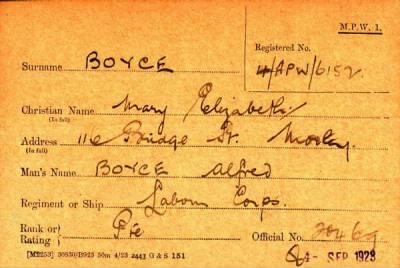 M.P.W. 1.
Registered No.
4/APW/6152
Surname BOYCE
Christian Name Mary Elizabeth
(In full)
Address 116 Bridge St. Morley.
(In full)
Man's Name BOYCE Alfred
Regiment or Ship Labour Corps.
Rank or Rating Pte
Official No.
[M2253] 30830/B925 50m 4/23 2443 G & S 151
SEP 1923